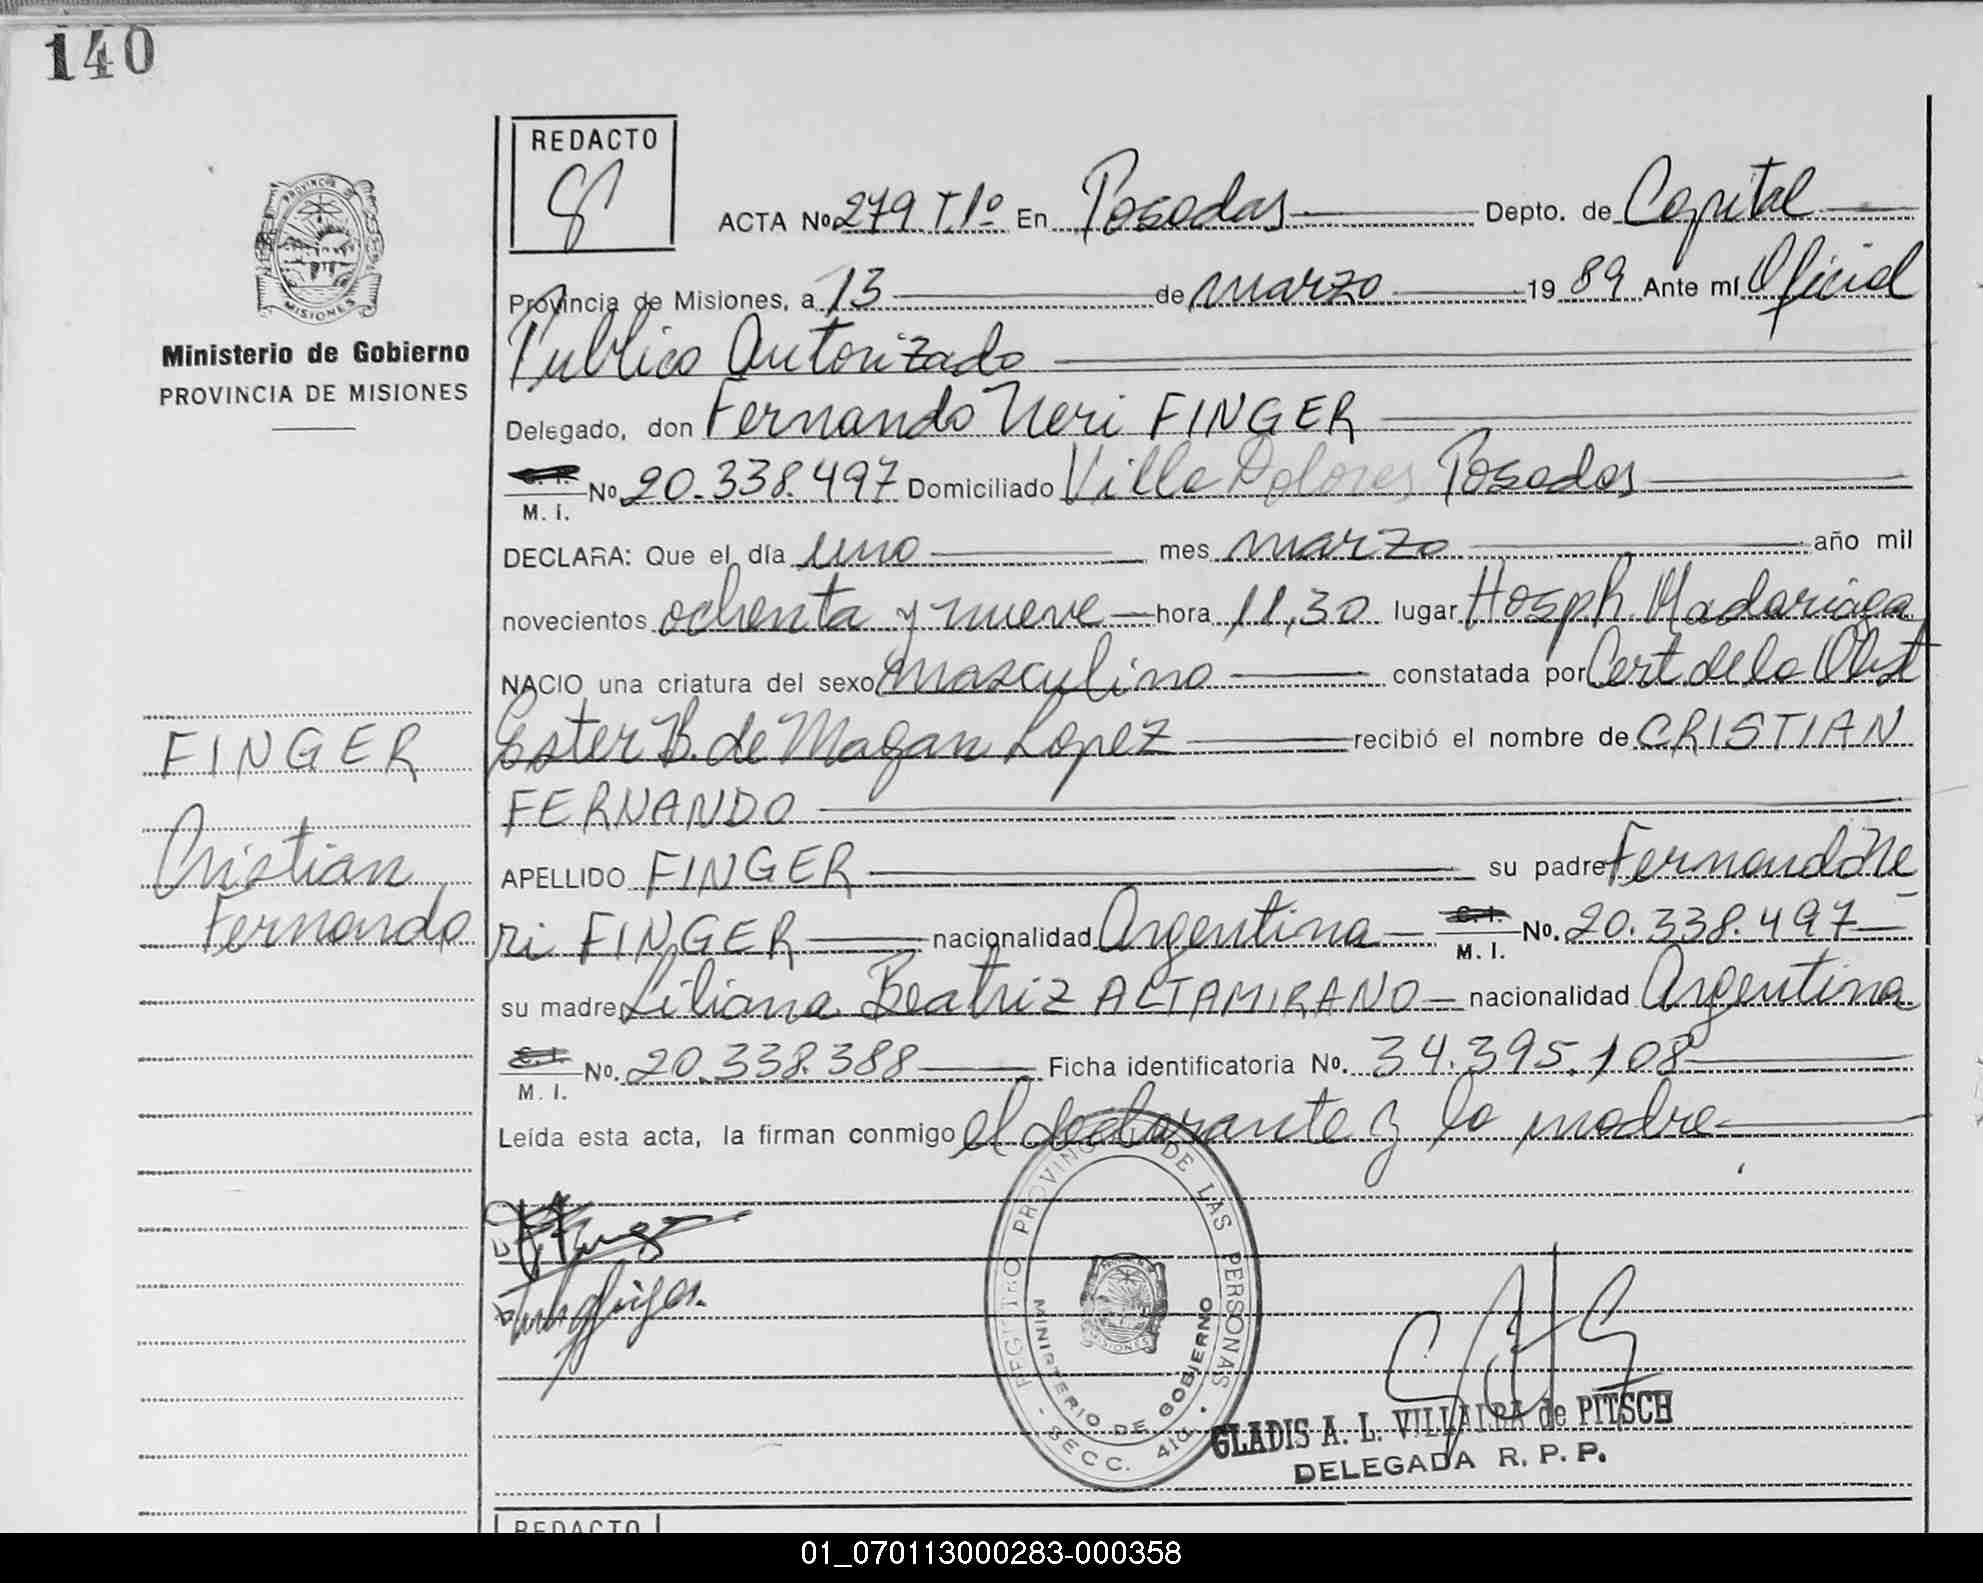 140
REDACTO
ACTA Nº 279 T.1º En Posadas Depto. de Capital
Provincia de Misiones, a 13 de marzo 1989 Ante mí Oficial
Publico Autorizado
Delegado, don Fernando Neri FINGER
C. I. Nº 20.338.497 Domiciliado Villa Dolores Posadas
M. I.
DECLARA: Que el día uno mes marzo año mil
novecientos ochenta y nueve hora 11,30 lugar Hosp. R. Madariaga
NACIO una criatura del sexo masculino constatada por Cert de la Obst
Ester B. de Magan Lopez recibió el nombre de CRISTIAN
FERNANDO
APELLIDO FINGER su padre Fernando Ne
ri FINGER nacionalidad Argentina C. I. Nº. 20.338.497
M. I.
su madre Liliana Beatriz ALTAMIRANO nacionalidad Argentina
C. I. Nº. 20.338.388 Ficha identificatoria Nº. 34.395.108
M. I.
Leída esta acta, la firman conmigo el declarante y la madre
PROVINCIA DE MISIONES
Ministerio de Gobierno
PROVINCIA DE MISIONES
FINGER
Cristian
Fernando
REGISTRO PROVINCIAL DE LAS PERSONAS
MINISTERIO DE GOBIERNO
MISIONES
- SECC. 41a. -
GLADIS A. L. VILLALBA de PITSCH
DELEGADA R. P. P.
REDACTO
01_070113000283-000358